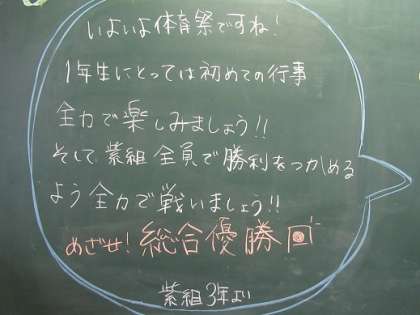 いよいよ体育祭ですね!
1年生にとっては初めての行事
全力で楽しみましょう!!
そして紫組全員で勝利をつかめる
よう全力で戦いましょう!!
めざせ!総合優勝
紫組3年より